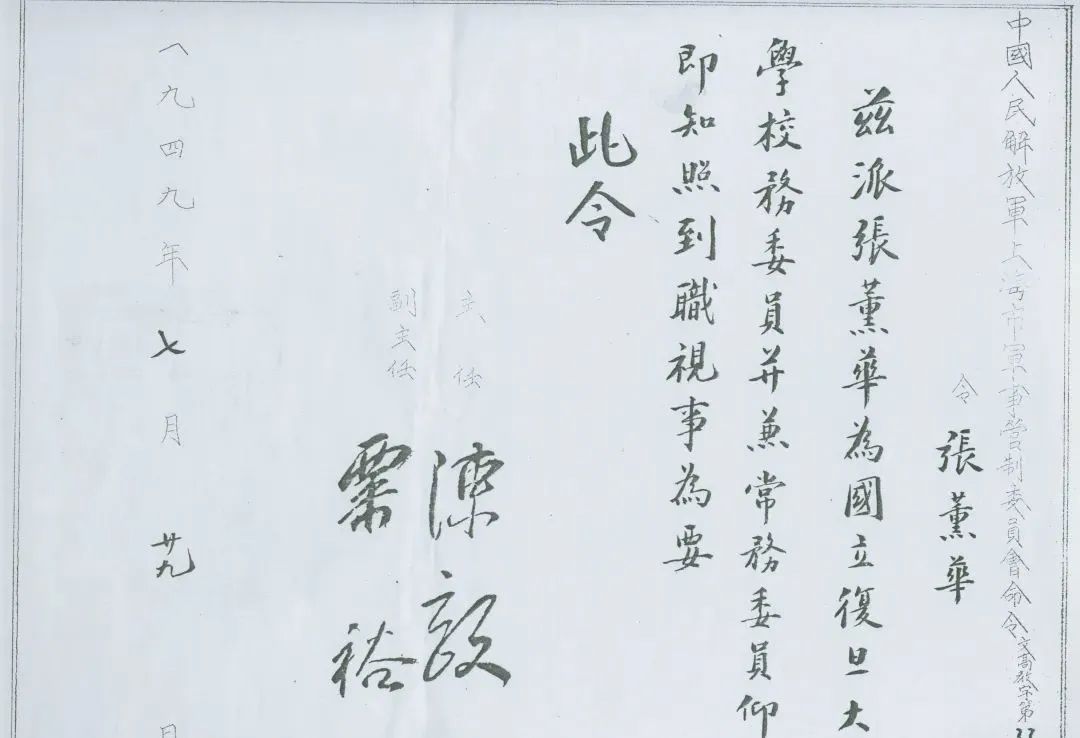 中國人民解放軍上海市軍事管制委員會命令文高教字第
令 張薰華
茲派張薰華為國立復旦大
學校務委員并兼常務委員仰
即知照到職視事為要
此令
主任 陳毅
副主任 粟裕
一九四九年七月廿九日